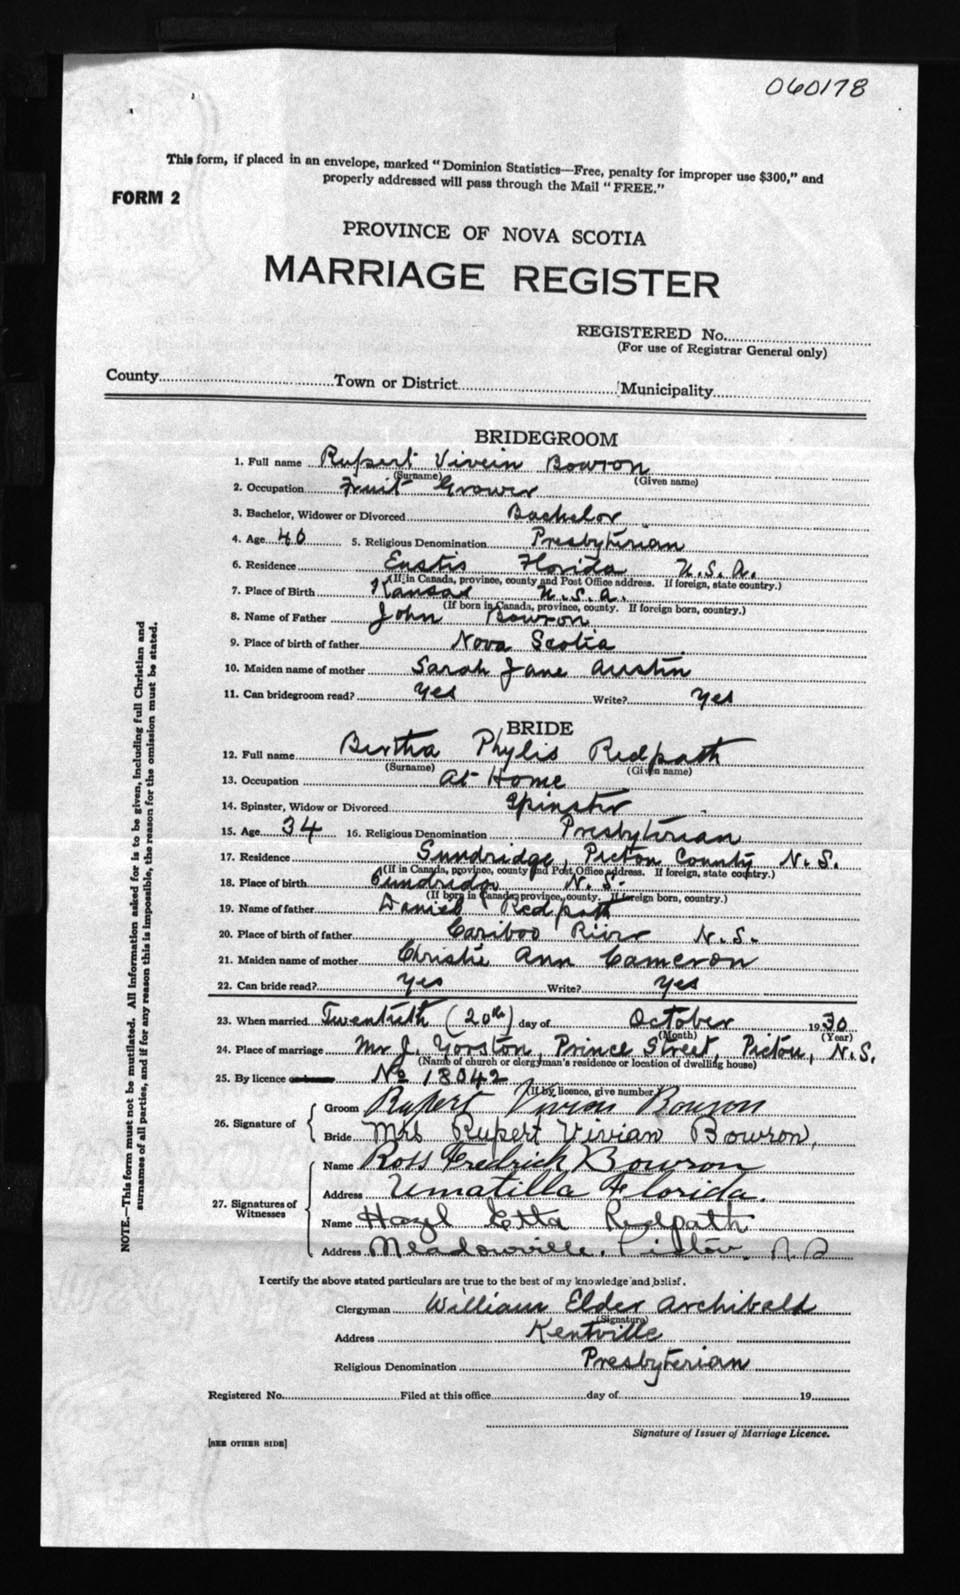 060178
This form, if placed in an envelope, marked "Dominion Statistics—Free, penalty for improper use $300," and
properly addressed will pass through the Mail "FREE."
FORM 2
PROVINCE OF NOVA SCOTIA
MARRIAGE REGISTER
REGISTERED No.
(For use of Registrar General only)
County Town or District Municipality
BRIDEGROOM
1. Full name Rupert Vivein Bowron
(Surname) (Given name)
2. Occupation Fruit Grower
3. Bachelor, Widower or Divorced Bachelor
4. Age 40 5. Religious Denomination Presbyterian
6. Residence Eustis Florida U.S.A.
(If in Canada, province, county and Post Office address. If foreign, state country.)
7. Place of Birth Kansas U.S.A.
(If born in Canada, province, county. If foreign born, country.)
8. Name of Father John Bowron
9. Place of birth of father Nova Scotia
10. Maiden name of mother Sarah Jane Austin
11. Can bridegroom read? Yes Write? Yes
BRIDE
12. Full name Bertha Phylis Redpath
(Surname) (Given name)
13. Occupation At Home
14. Spinster, Widow or Divorced Spinster
15. Age 34 16. Religious Denomination Presbyterian
17. Residence Sundridge, Picton County N.S.
(If in Canada, province, county and Post Office address. If foreign, state country.)
18. Place of birth Sundridge N.S.
(If born in Canada, province, county. If foreign born, country.)
19. Name of father Daniel Redpath
20. Place of birth of father Cariboo River N.S.
21. Maiden name of mother Christie Ann Cameron
22. Can bride read? Yes Write? Yes
23. When married Twentieth (20th) day of October 1930
(Month) (Year)
24. Place of marriage Mr J. Yorston, Prince Street, Pictou, N.S.
(Name of church or clergyman's residence or location of dwelling house)
25. By licence No 18042
(If by licence, give number)
26. Signature of Groom Rupert Vivian Bowron
Bride Mrs Rupert Vivian Bowron,
27. Signatures of Witnesses Name Ross Fredrich Bowron
Address Umatilla Florida.
Name Hazel Etta Redpath
Address Meadowville, Pictou, N.S
I certify the above stated particulars are true to the best of my knowledge and belief.
Clergyman William Elder Archibald
(Signature)
Address Kentville
Religious Denomination Presbyterian
Registered No. Filed at this office day of 19
Signature of Issuer of Marriage Licence.
[SEE OTHER SIDE]
NOTE.—This form must not be mutilated. All information asked for is to be given, including full Christian and
surnames of all parties, and if for any reason this is impossible, the reason for the omission must be stated.